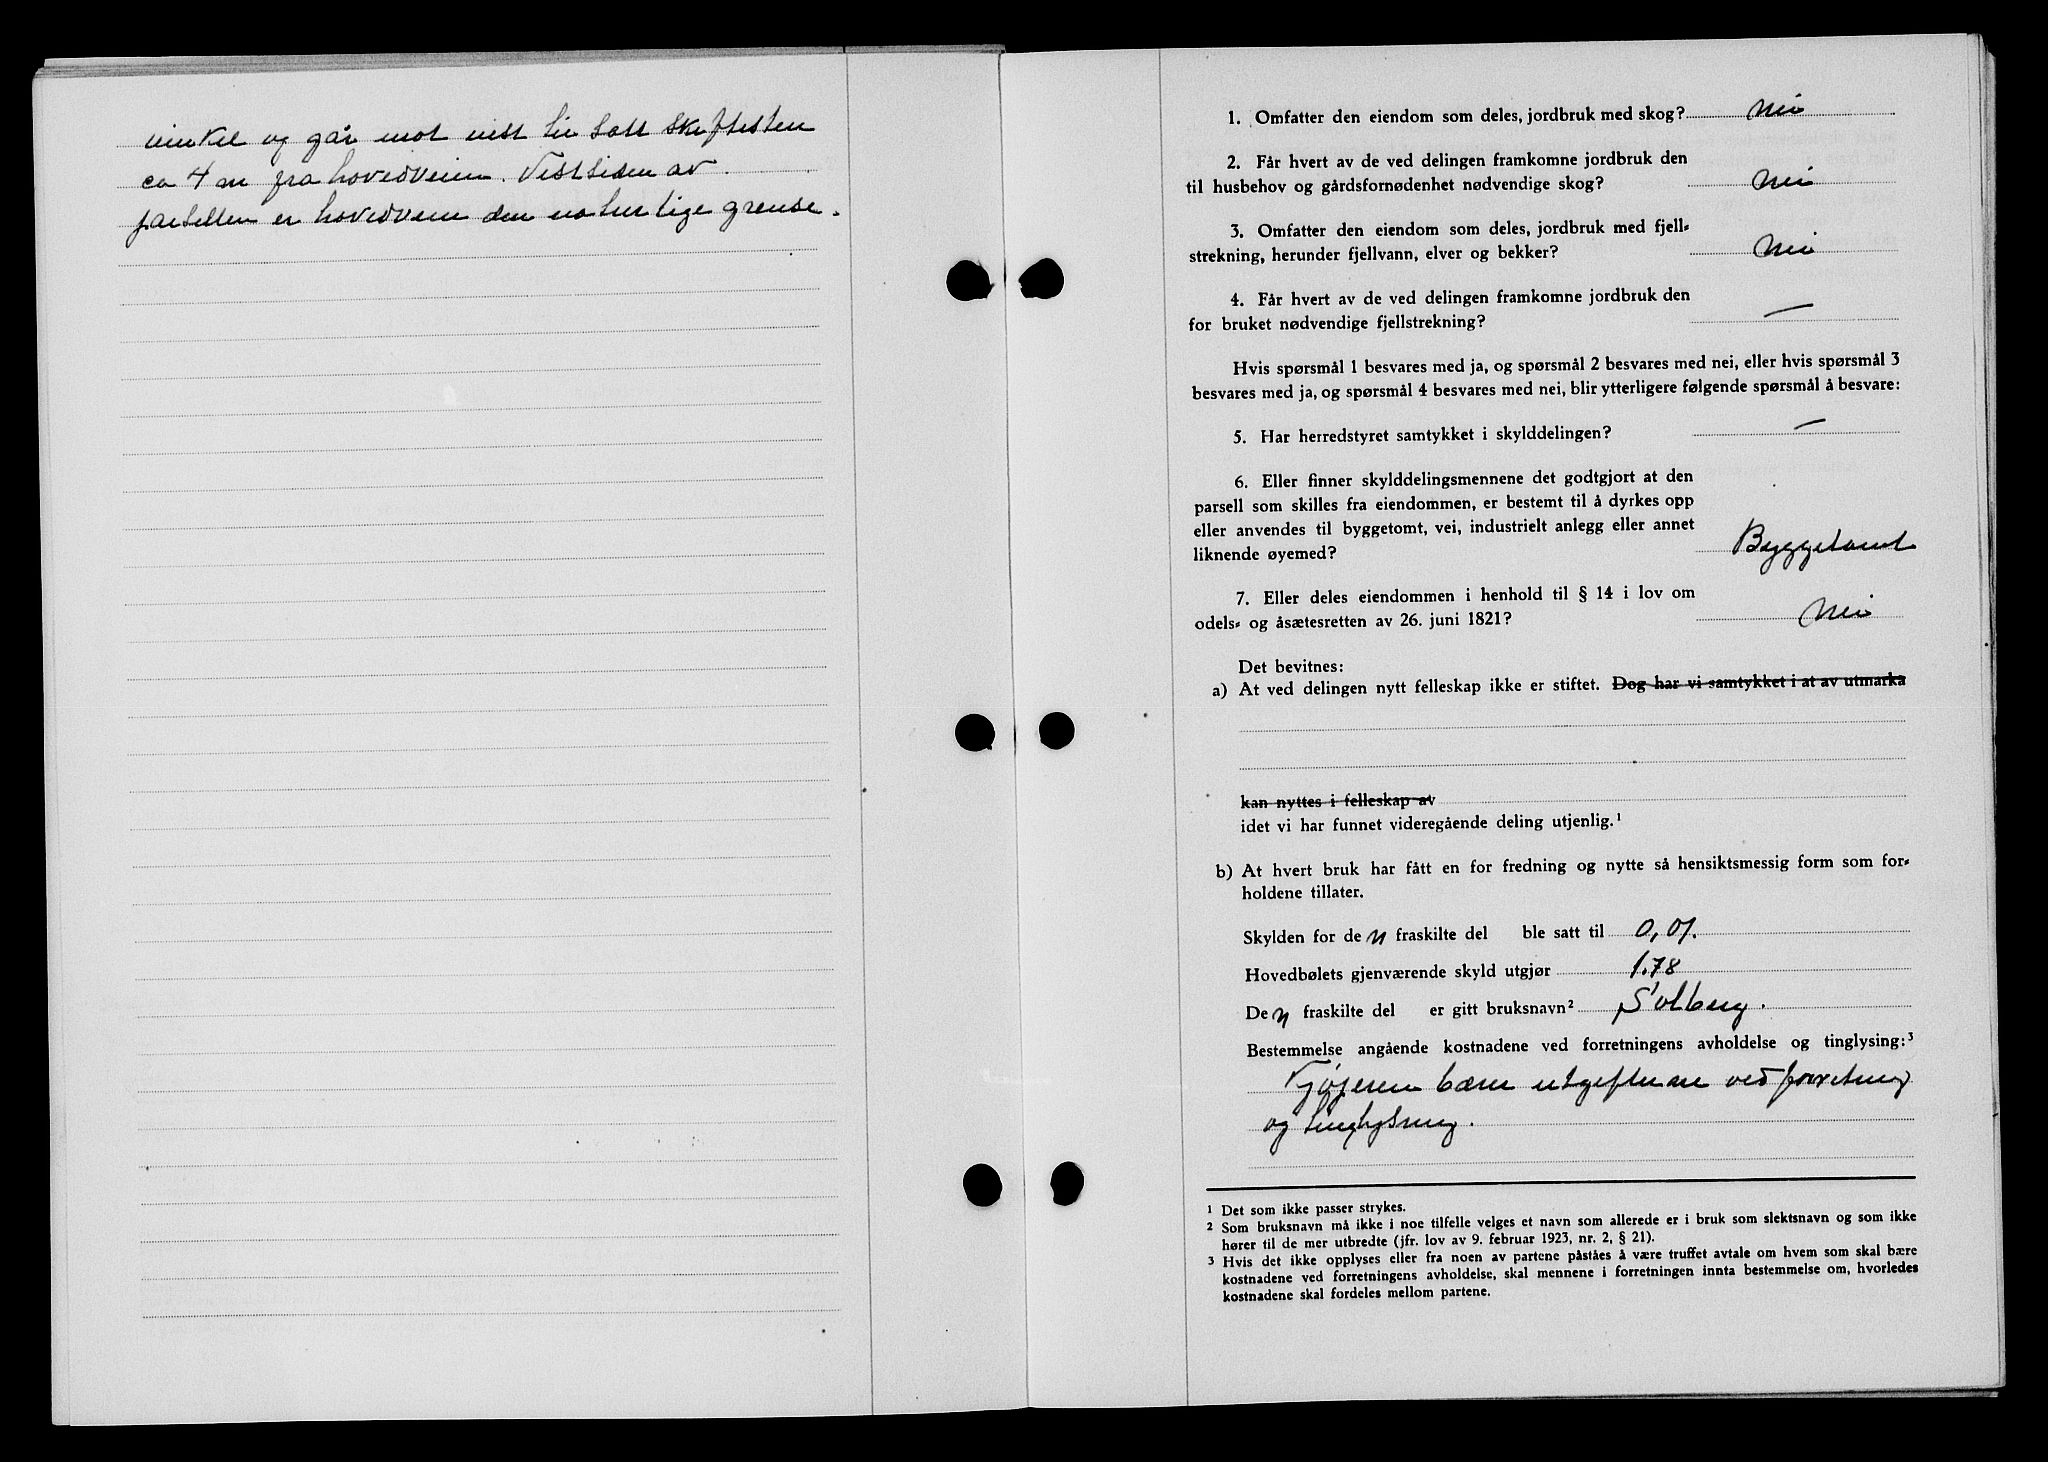 vinkel og går mot vest til satt skiftesten
ca 4 m fra hovedveien. Vestsiden av
parsellen er hovedveien den naturlige grense.
1. Omfatter den eiendom som deles, jordbruk med skog? Nei
2. Får hvert av de ved delingen framkomne jordbruk den
til husbehov og gårdsfornødenhet nødvendige skog? Nei
3. Omfatter den eiendom som deles, jordbruk med fjell-
strekning, herunder fjellvann, elver og bekker? Nei
4. Får hvert av de ved delingen framkomne jordbruk den
for bruket nødvendige fjellstrekning? —
Hvis spørsmål 1 besvares med ja, og spørsmål 2 besvares med nei, eller hvis spørsmål 3
besvares med ja, og spørsmål 4 besvares med nei, blir ytterligere følgende spørsmål å besvare:
5. Har herredstyret samtykket i skylddelingen? —
6. Eller finner skylddelingsmennene det godtgjort at den
parsell som skilles fra eiendommen, er bestemt til å dyrkes opp
eller anvendes til byggetomt, vei, industrielt anlegg eller annet
liknende øyemed? Byggetomt
7. Eller deles eiendommen i henhold til § 14 i lov om
odels- og åsætesretten av 26. juni 1821? Nei
Det bevitnes:
a) At ved delingen nytt felleskap ikke er stiftet. Dog har vi samtykket i at av utmarka
kan nyttes i felleskap av
idet vi har funnet videregående deling utjenlig.¹
b) At hvert bruk har fått en for fredning og nytte så hensiktsmessig form som for-
holdene tillater.
Skylden for den fraskilte del ble satt til 0,01.
Hovedbølets gjenværende skyld utgjør 1.78
Den fraskilte del er gitt bruksnavn² Solberg.
Bestemmelse angående kostnadene ved forretningens avholdelse og tinglysing:³
Kjøperen bærer utgifterne ved forretning
og tinglysning.
¹ Det som ikke passer strykes.
² Som bruksnavn må ikke i noe tilfelle velges et navn som allerede er i bruk som slektsnavn og som ikke
hører til de mer utbredte (jfr. lov av 9. februar 1923, nr. 2, § 21).
³ Hvis det ikke opplyses eller fra noen av partene påståes å være truffet avtale om hvem som skal bære
kostnadene ved forretningens avholdelse, skal mennene i forretningen innta bestemmelse om, hvorledes
kostnadene skal fordeles mellom partene.